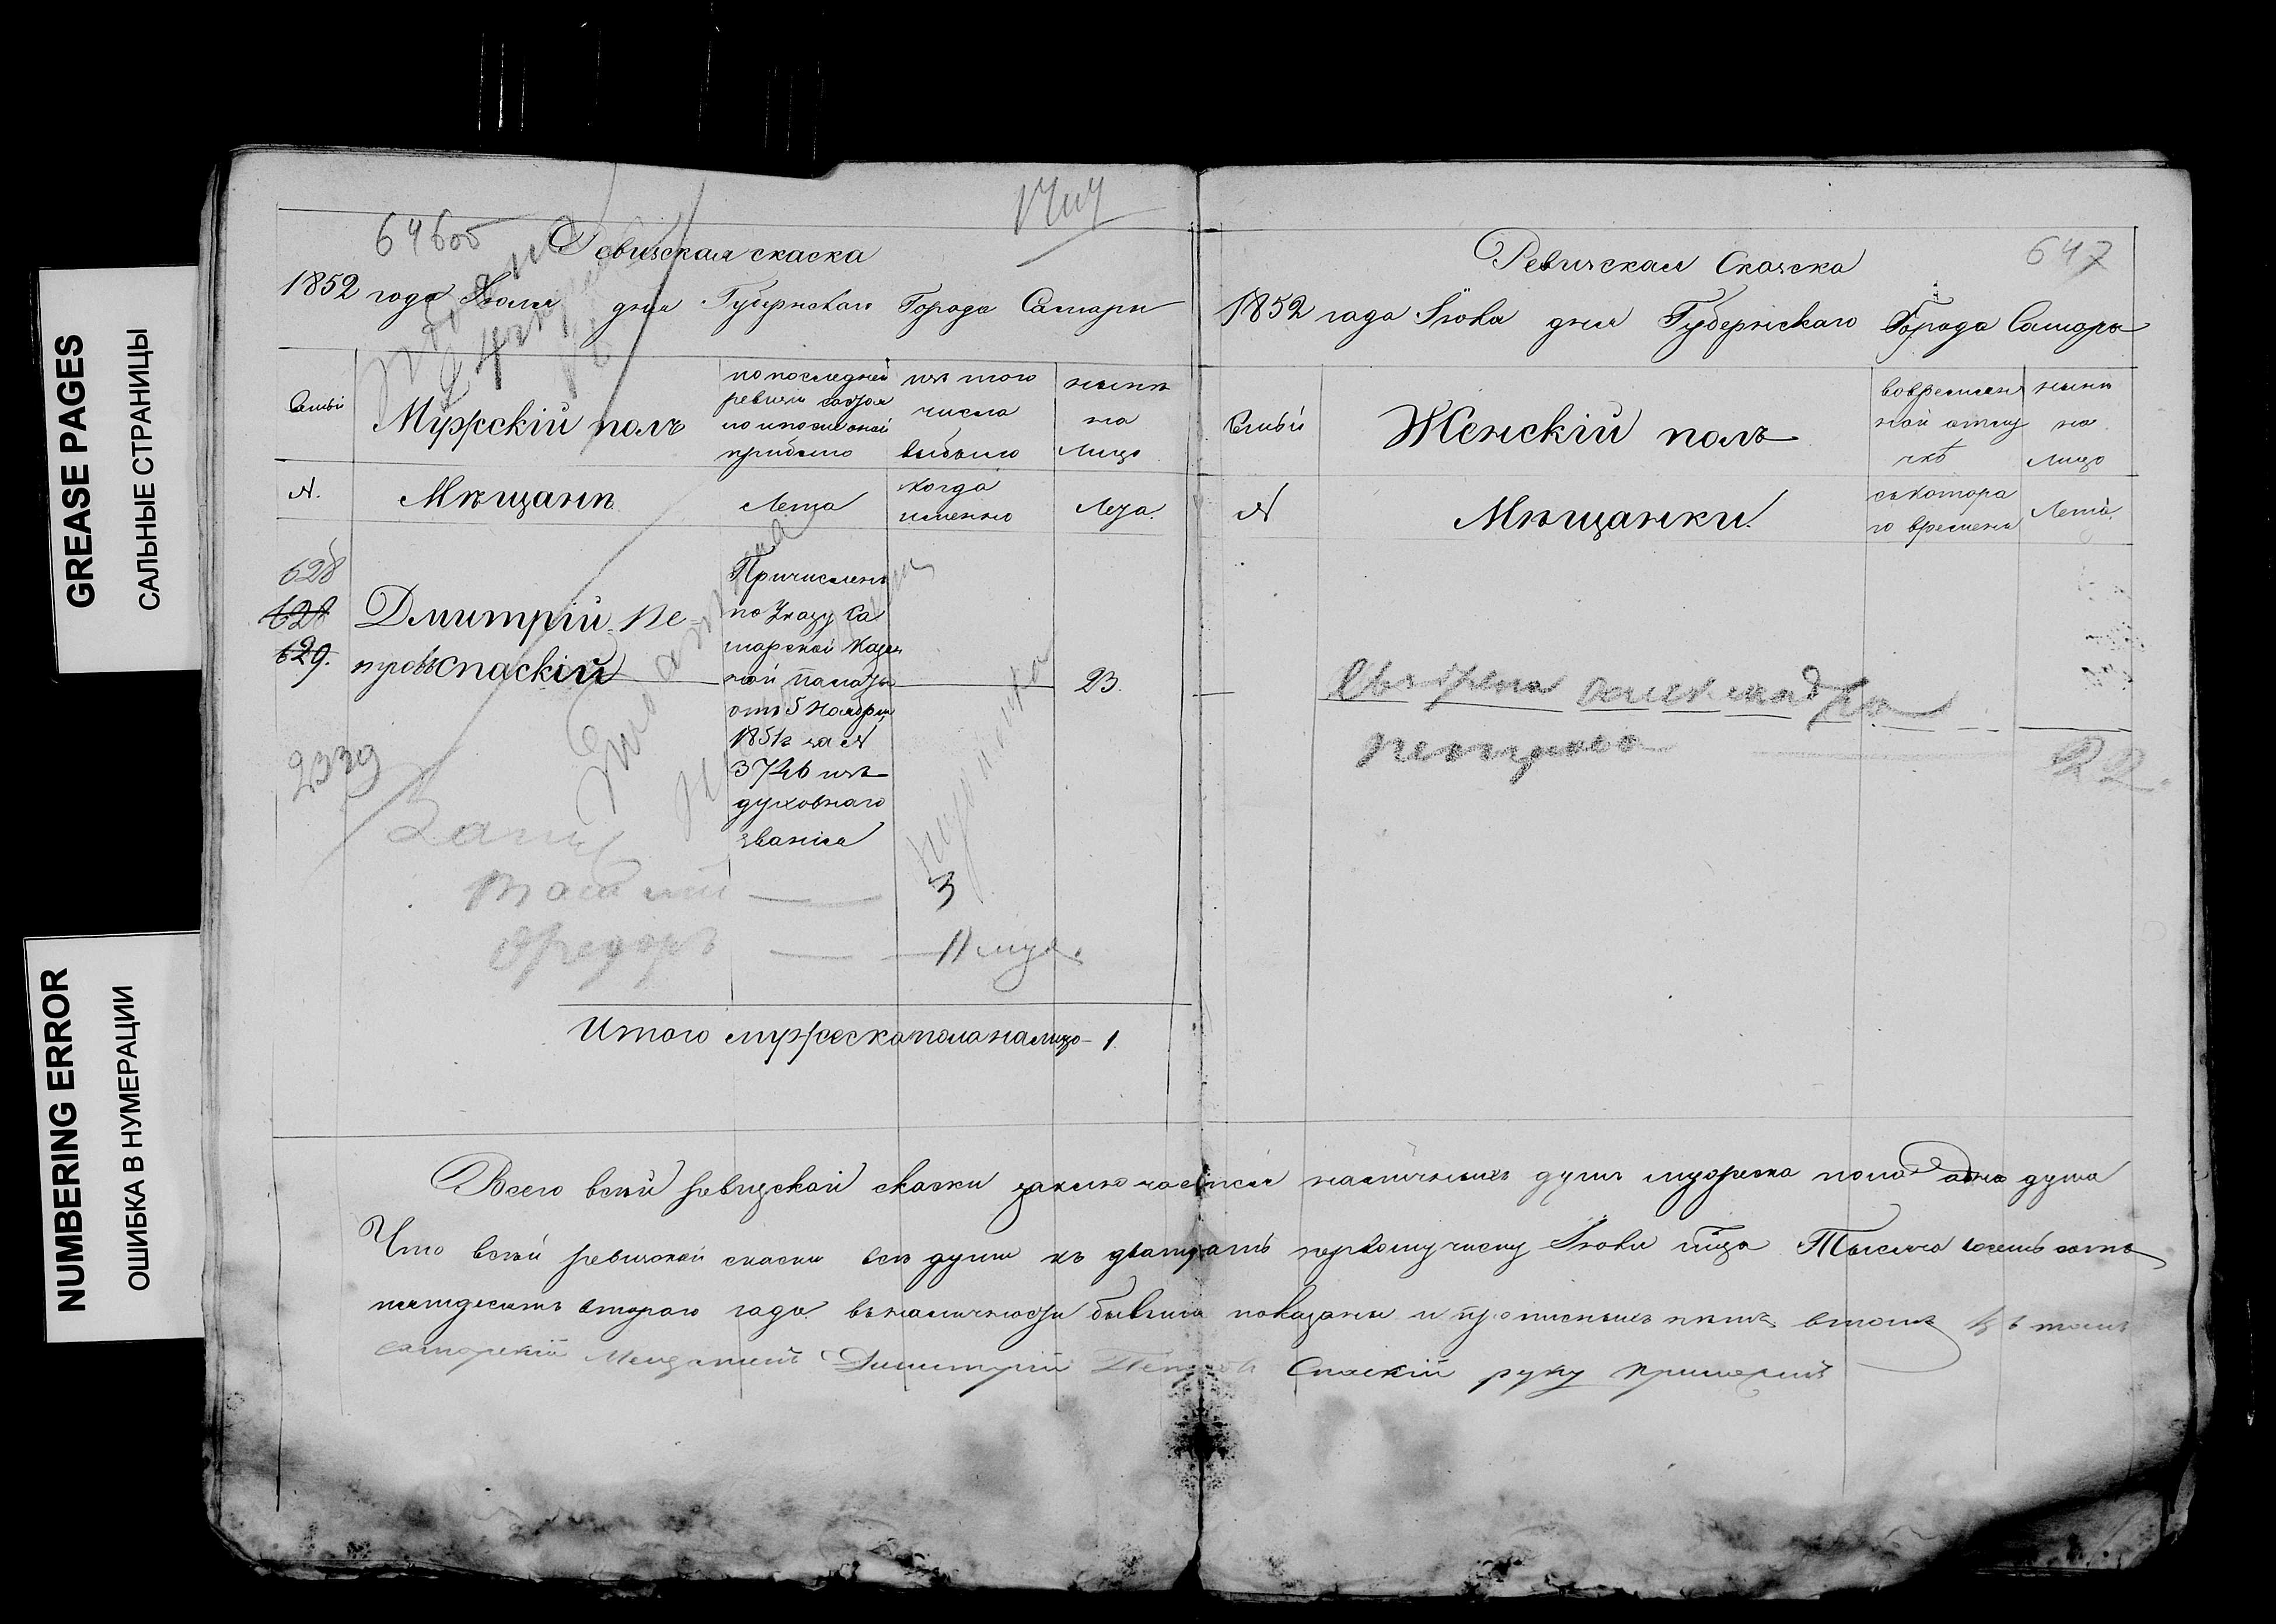 GREASE PAGES
САЛЬНЫЕ СТРАНИЦЫ
NUMBERING ERROR
ОШИБКА В НУМЕРАЦИИ
646об
Ревизская скаска
1852 года Июля дня Губернскаго Города Самары
Семьи
Мужскій полъ
по последней
ревизіи состоя
ло и после оной
прибыло
изъ того
числа
выбыло
ныне
на
лицо
№.
Мѣщанѣ
Лета
когда
именно
Лета.
628
628
629.
Дмитрій Пе-
тровъ Спаскій
Причисленъ
по Указу Са
марской Казен
ной Палаты
отъ 5 Ноября
1851г за №
3746 изъ
духовнаго
званія
23.
2339
Василий
3
Федоръ
11 муж.
Итого мужеска пола на лицо - 1
647
Ревизская Скаска
1852 года Июня дня Губернскаго Города Самары
Семьи
Женскій полъ
во времен
ной отлу
чкѣ
ныне
на
лицо
№
Мѣщанки.
съ котора
го времени
Лета.
Александра
Петрова
22.
Всего всей ревизской скаски заключается наличныхъ душъ мужеска пола одна душа
Что всей ревизской скаски все души къ двадцать первому числу Июня Тысяча восемь сотъ
пятдесятъ втораго года въ наличности бывшия показаны и прописныхъ нетъ втомъ
самарскій Мещанинъ Димитрій Петровъ Спаскій руку приложилъ